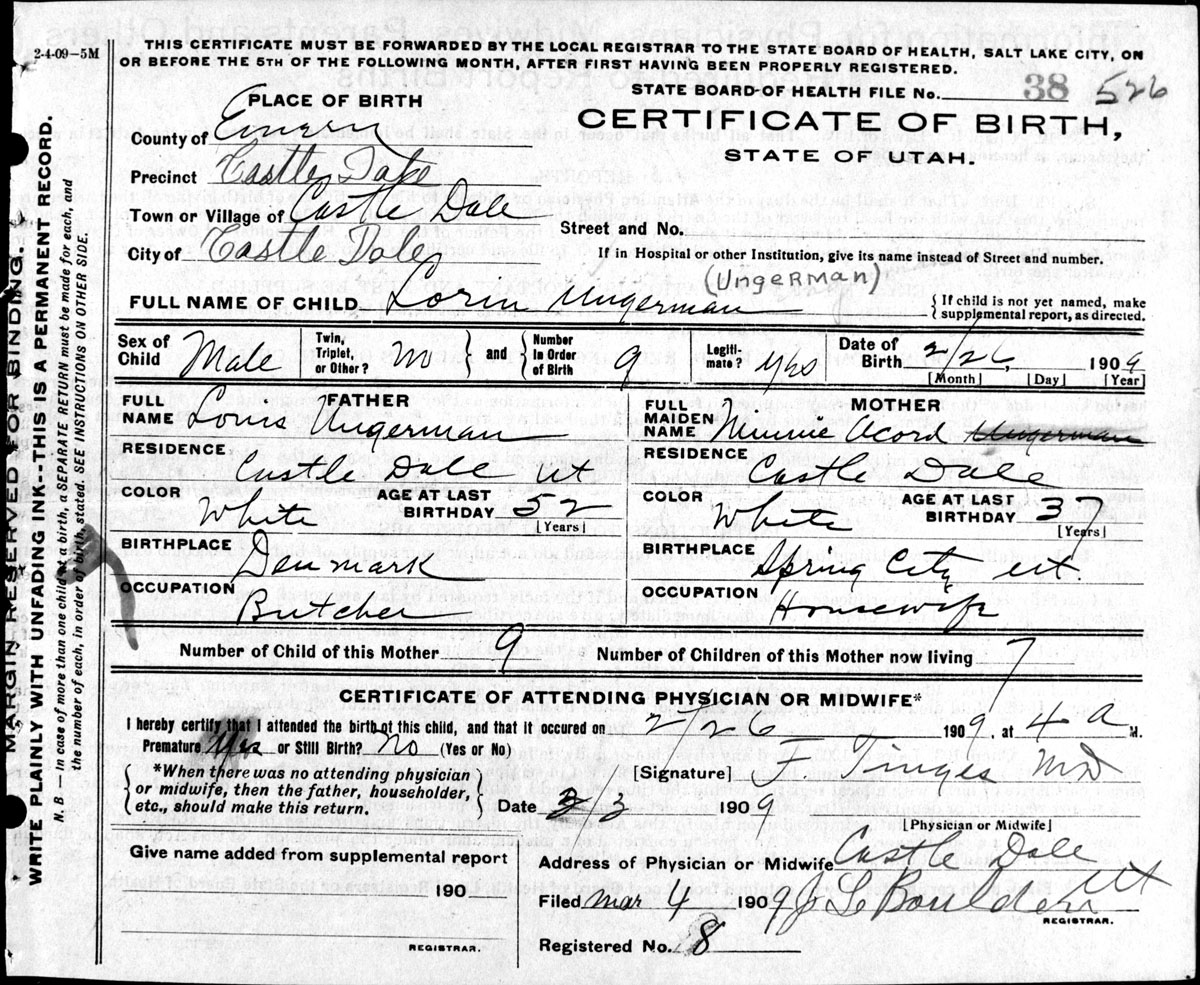 2-4-09—5M
THIS CERTIFICATE MUST BE FORWARDED BY THE LOCAL REGISTRAR TO THE STATE BOARD OF HEALTH, SALT LAKE CITY, ON
OR BEFORE THE 5TH OF THE FOLLOWING MONTH, AFTER FIRST HAVING BEEN PROPERLY REGISTERED.
STATE BOARD OF HEALTH FILE No. 38 526
PLACE OF BIRTH
CERTIFICATE OF BIRTH,
STATE OF UTAH.
County of Emery
Precinct Castle Dale
Town or Village of Castle Dale
Street and No.
City of Castle Dale
If in Hospital or other Institution, give its name instead of Street and number.
(Ungerman)
FULL NAME OF CHILD Lorin Ungerman
{If child is not yet named, make
supplemental report, as directed.
Sex of Child Male
Twin, Triplet, or Other? No
and
Number In Order of Birth 9
Legiti-mate? yes
Date of Birth 2/26, 1909
[Month] [Day] [Year]
FATHER
FULL NAME Louis Ungerman
RESIDENCE
Castle Dale Ut
COLOR White
AGE AT LAST BIRTHDAY 52
[Years]
BIRTHPLACE
Denmark
OCCUPATION
Butcher
MOTHER
FULL MAIDEN NAME Minnie Acord Ungerman
RESIDENCE
Castle Dale
COLOR White
AGE AT LAST BIRTHDAY 37
[Years]
BIRTHPLACE
Spring City Ut.
OCCUPATION
Housewife
Number of Child of this Mother 9
Number of Children of this Mother now living 7
CERTIFICATE OF ATTENDING PHYSICIAN OR MIDWIFE*
I hereby certify that I attended the birth of this child, and that it occured on 2/26 1909, at 4 a M.
Premature Yes or Still Birth? No (Yes or No)
*When there was no attending physician
or midwife, then the father, householder,
etc., should make this return.
[Signature] F Tinges MD
Date 3/3 1909
[Physician or Midwife]
Give name added from supplemental report
190
REGISTRAR.
Address of Physician or Midwife Castle Dale Ut
Filed Mar 4 1909 J L Boulden
REGISTRAR.
Registered No. 8
MARGIN RESERVED FOR BINDING.
WRITE PLAINLY WITH UNFADING INK--THIS IS A PERMANENT RECORD.
N. B.—In case of more than one child at a birth, a SEPARATE RETURN must be made for each, and
the number of each, in order of birth, stated. SEE INSTRUCTIONS ON OTHER SIDE.